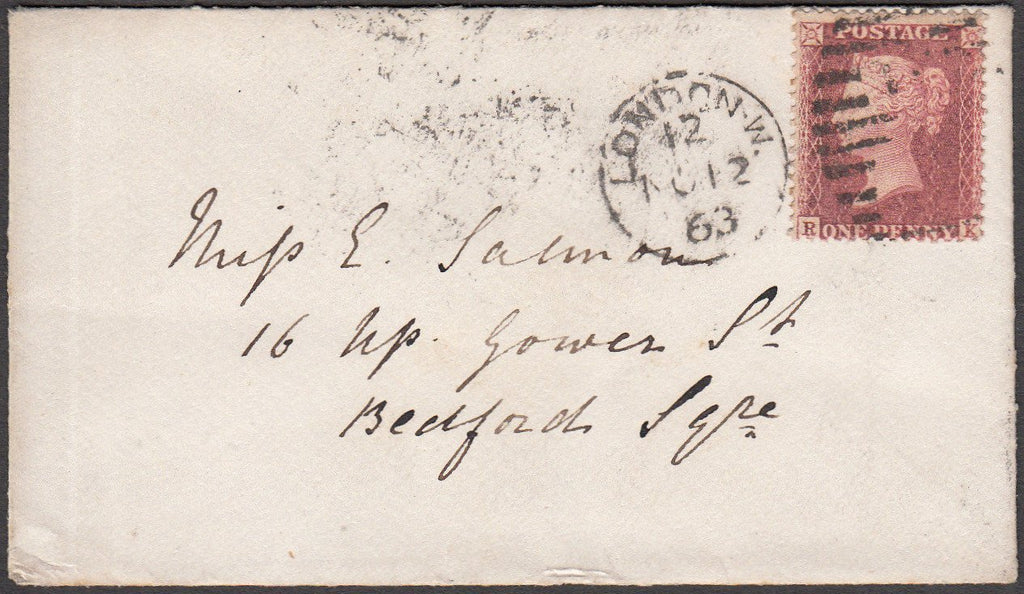 POSTAGE
LONDON-W.
12
NO 12
63
R ONE PENNY K
Miss E. Salmon
16 Up. Gower St
Bedford Sqre